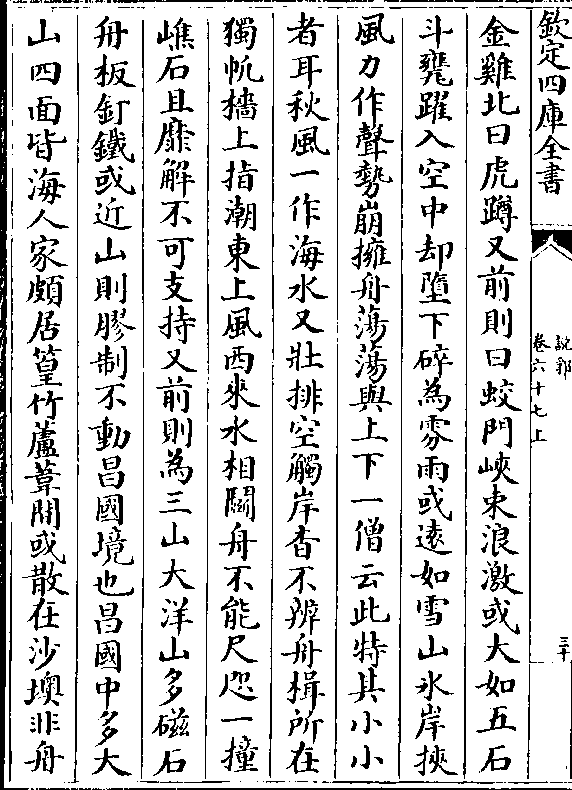 欽定四庫全書
說郛
卷六十七上
三十
金雞北曰虎蹲又前則曰蛟門峽束浪激或大如五石
斗甕躍入空中却墮下碎為雰雨或遠如雪山氷岸挾
風力作聲勢崩擁舟蕩蕩與上下一僧云此特其小小
者耳秋風一作海水又壯排空觸岸杳不辨舟楫所在
獨帆檣上指潮東上風西來水相鬬舟不能尺咫一撞
嶕石且靡解不可支持又前則為三山大洋山多磁石
舟板釘鐵或近山則膠制不動昌國境也昌國中多大
山四面皆海人家頗居篁竹蘆葦間或散在沙墺非舟